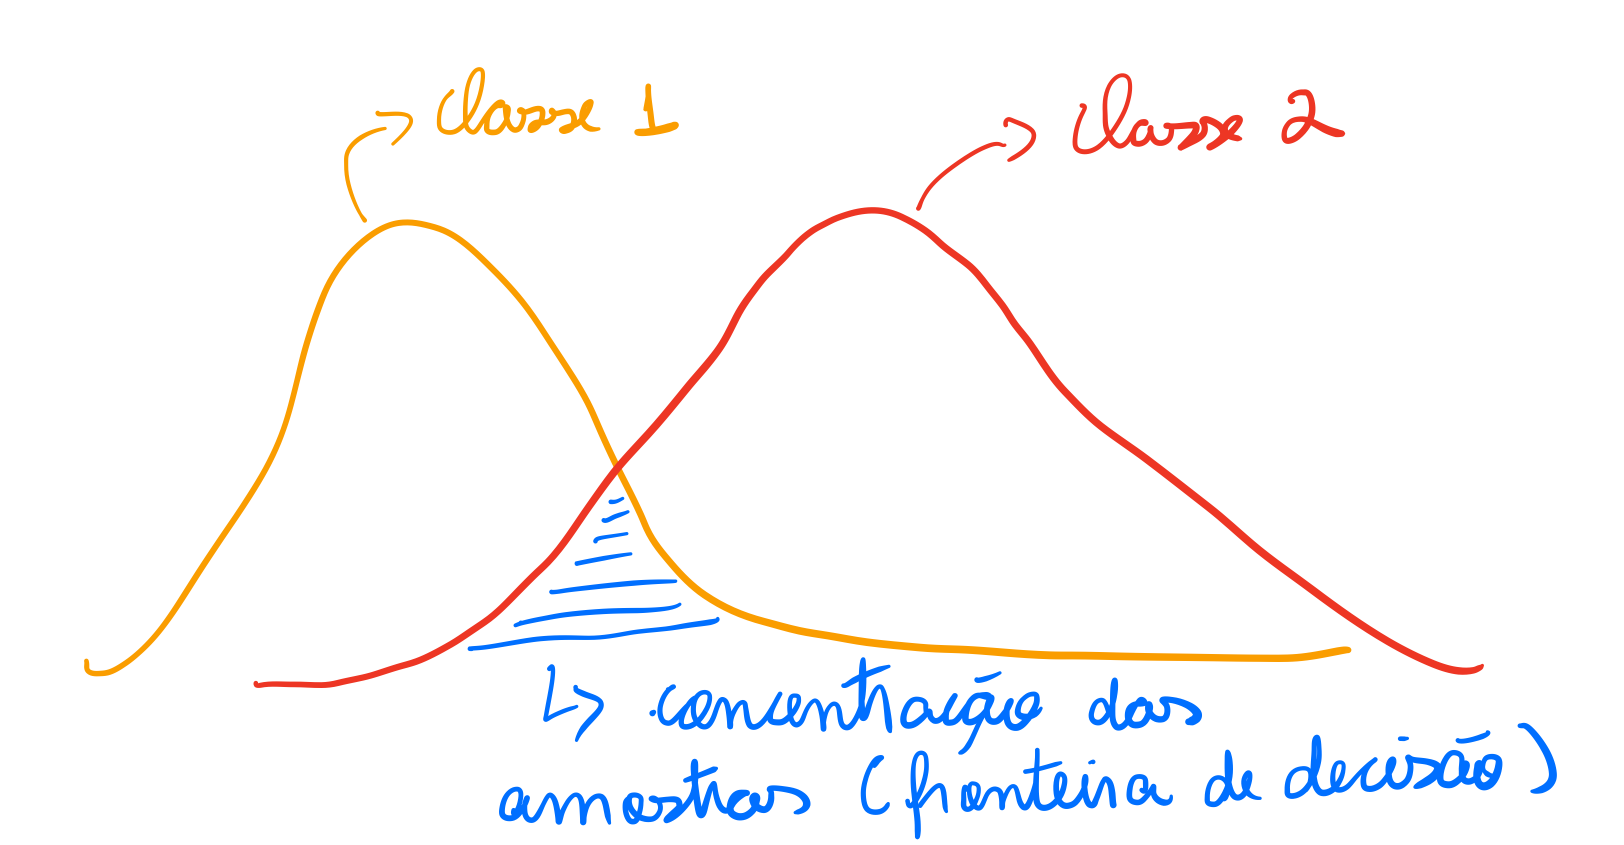 Classe 1
Classe 2
concentração das
amostras (fronteira de decisão)